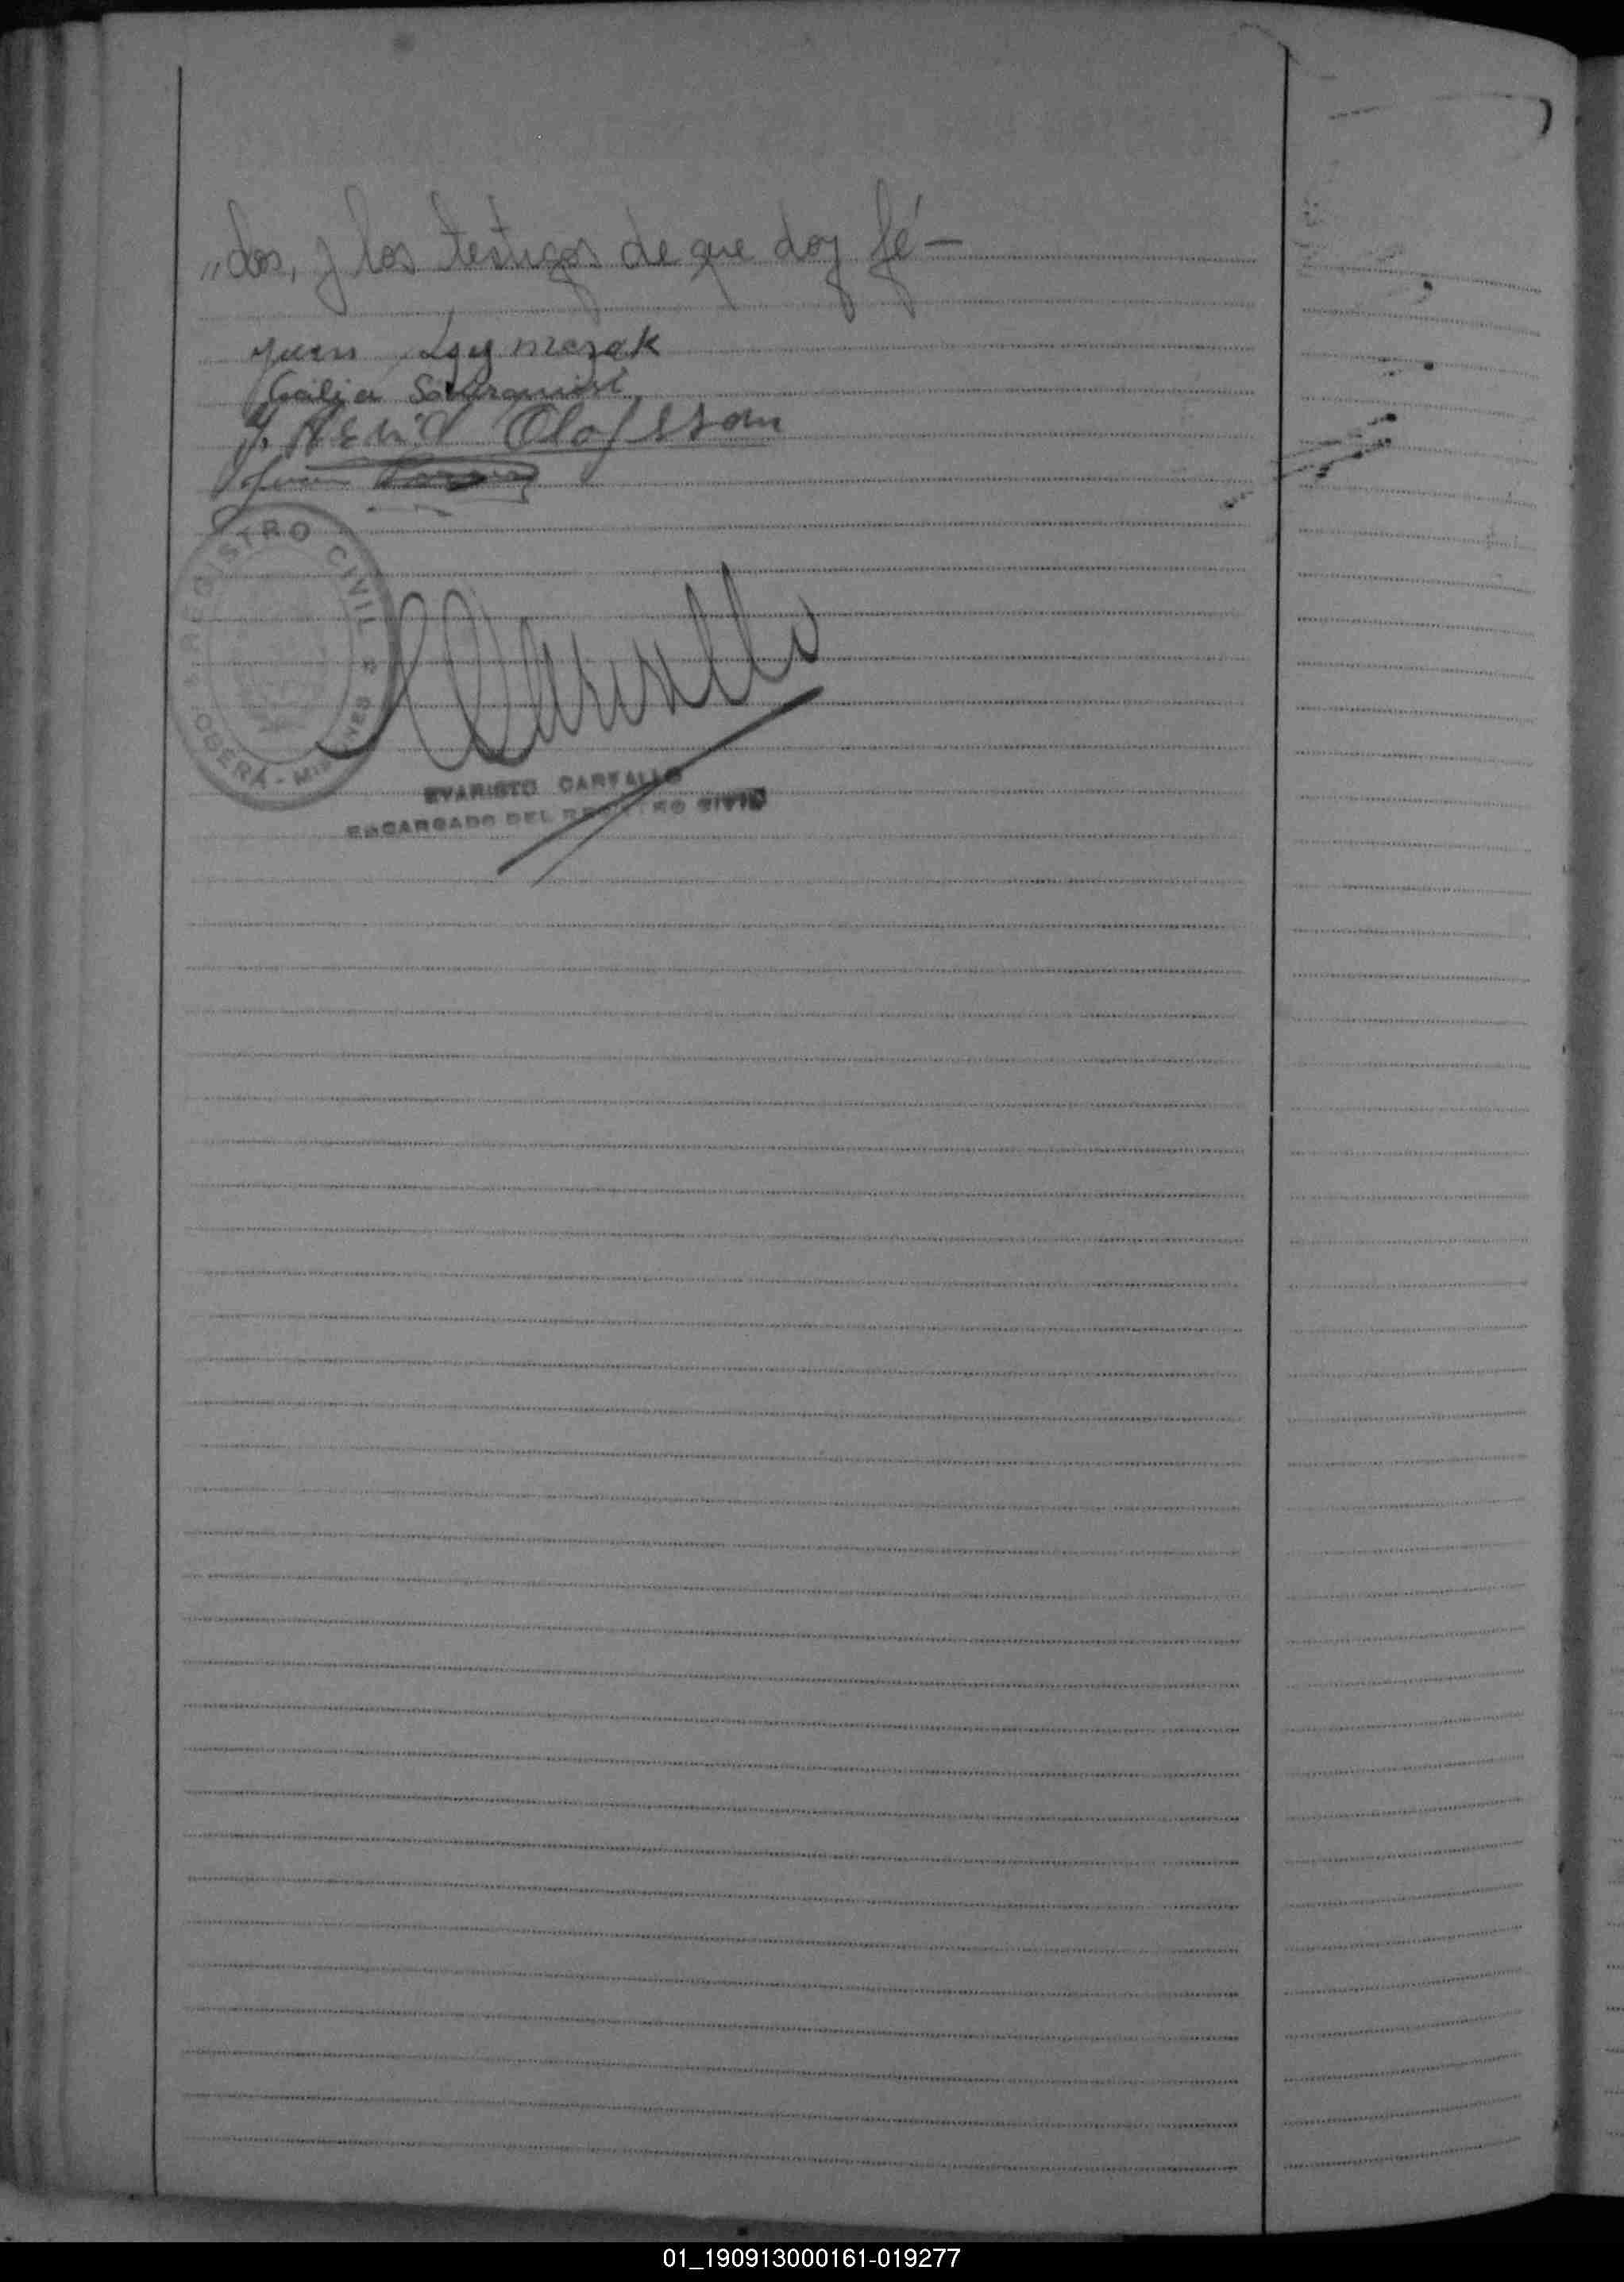 „dos, y los testigos de que doy fé —
Juan
Cecilja
J. Arvid Olofsson
Juan
REGISTRO CIVIL
OBERÁ - MISIONES
EVARISTO CARVALLO
ENCARGADO DEL REGISTRO CIVIL
01_190913000161-019277